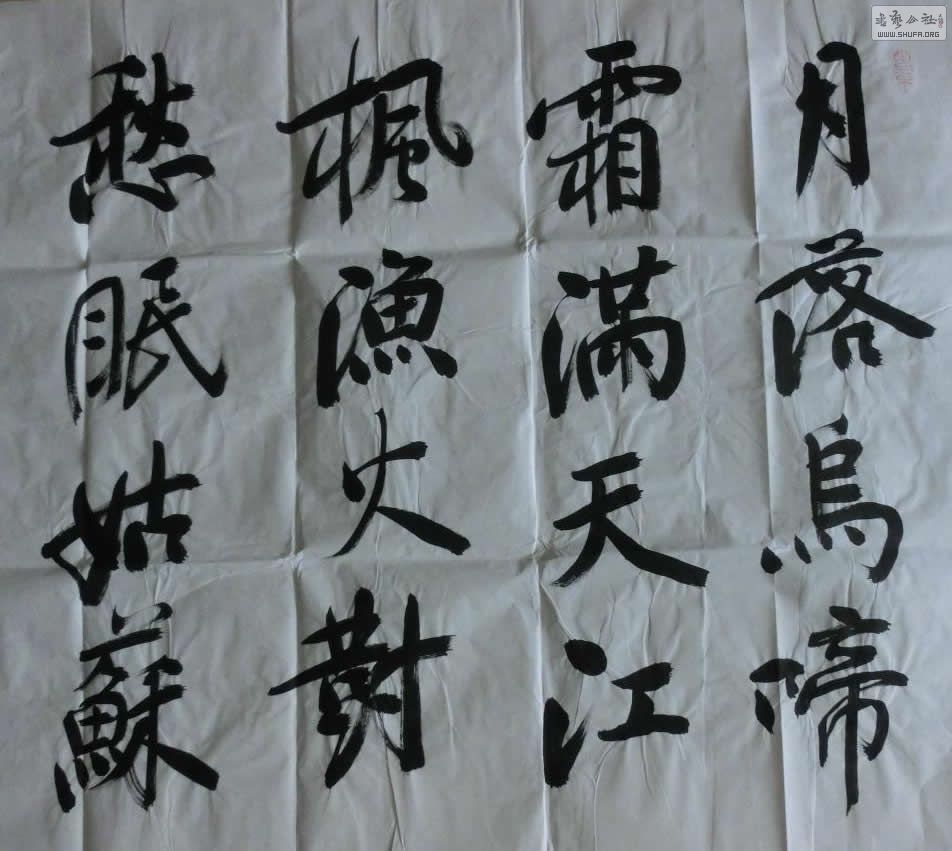 月落烏啼
霜滿天江
楓漁火對
愁眠姑蘇
书艺公社
WWW.SHUFA.ORG